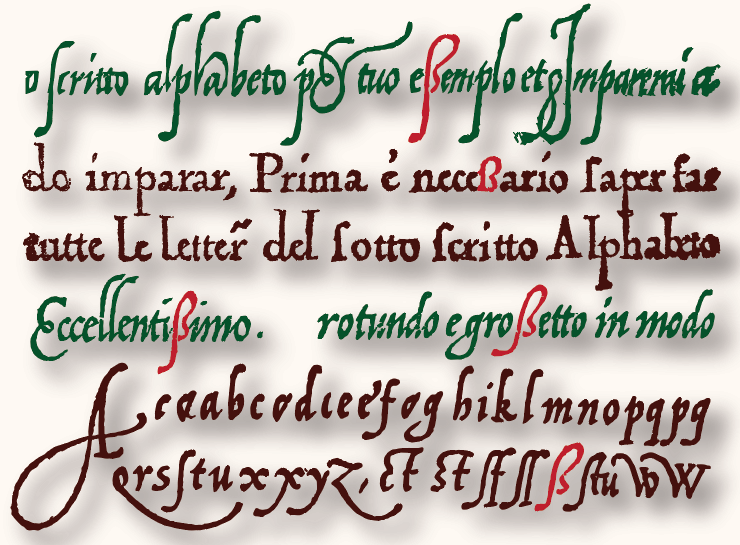 o ſcritto alphabeto tuo eßemplo et Imparerai a
do imparar, Prima è neceßario ſaper fare
tutte Le letter̃ del ſotto ſcritto Alphabeto
Eccellentißimo. rotundo e großetto in modo
A c a a b c e d ı e e f o g h i k l m n o p q p g
q r s ſ t u x x y z, ct st ſf ſſ ß ſtu W W